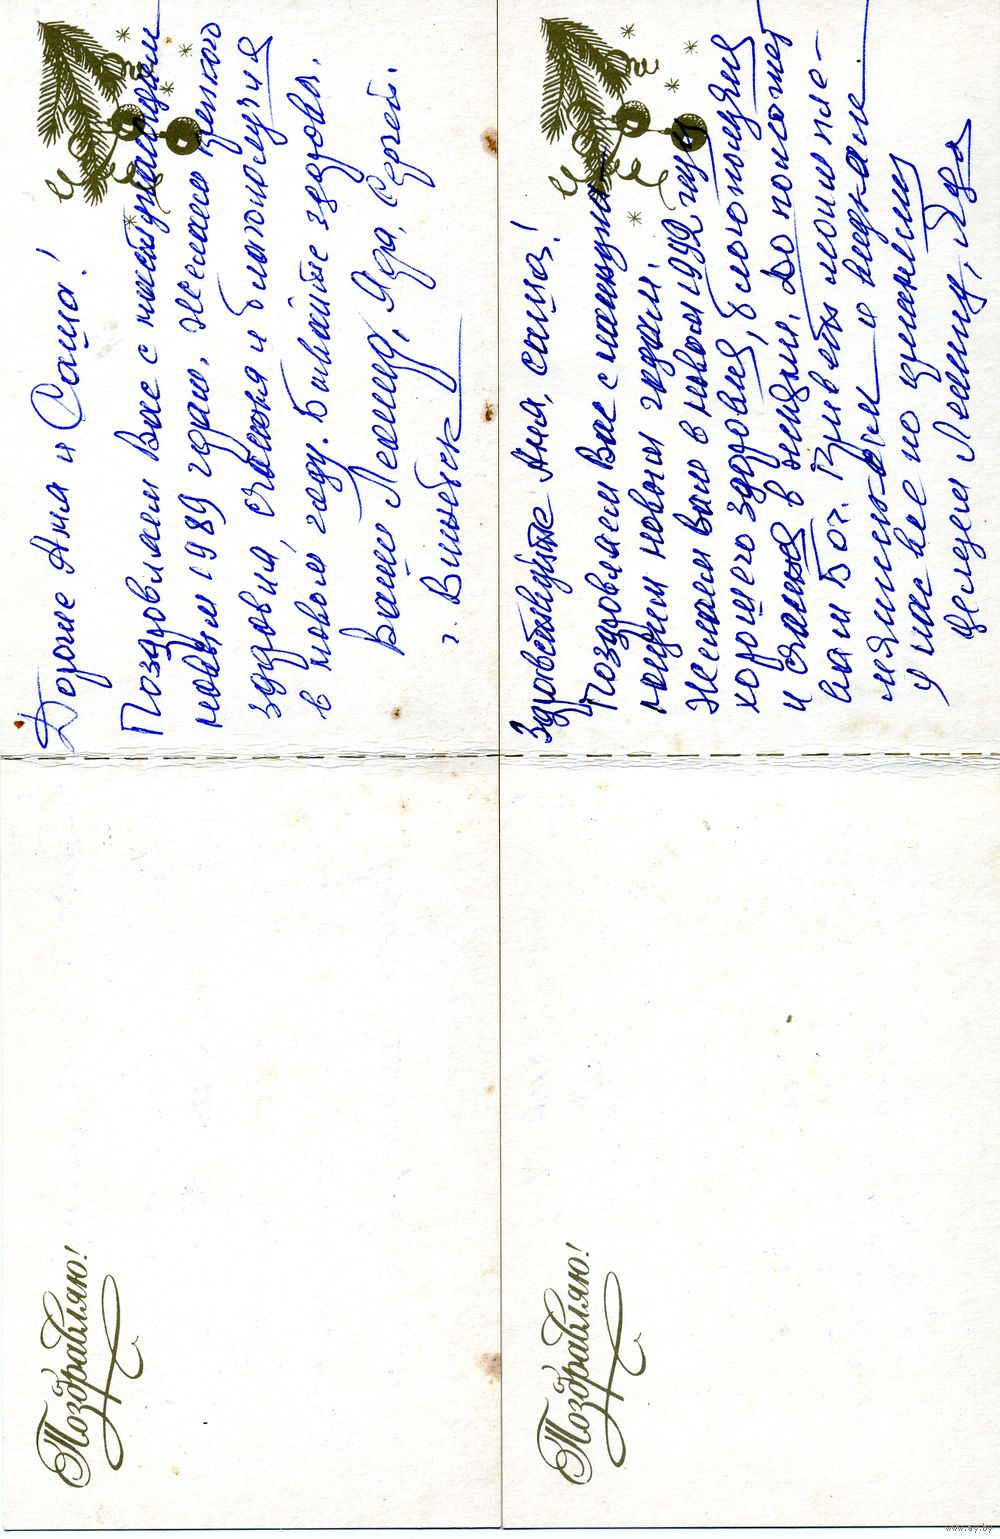 Поздравляю!
Дорогие Анна и Саша!
Поздравляем Вас с наступающим
новым 1989 годом. Желаем крепкого
здоровья, счастья и благополучия
в новом году. Бывайте здоровы.
Ваши Леонид, Яда, Сергей.
г. Витебск
Поздравляю!
Здравствуйте Анна, саша!
Поздравляем Вас с наступа-
ющим новым годом.
Желаем вам в новом 1992 году
хорошего здоровья, благополучия
и счастья в жизни. Да поможет
вам Бог. Привет моим пле-
мянникам и
у нас все по
целуем Леонид, Яда
www.ay.by